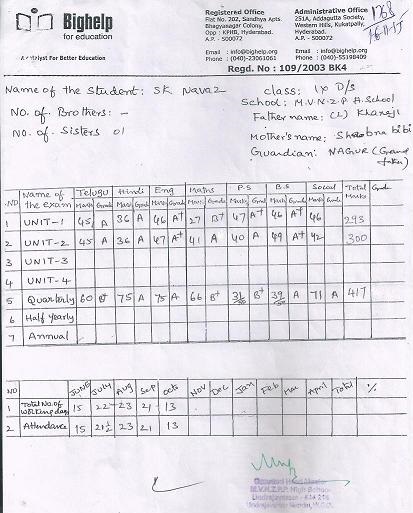 Bighelp
for education
Catalyst For Better Education
Registered Office
Flat No. 202, Sandhya Apts.
Bhagyanagar Colony,
Opp : KPHB, Hyderabad.
A.P. - 500072
Email : info@bighelp.org
Phone : (040)-23061061
Administrative Office
251A, Addagutta Society,
Western Hills, Kukatpally,
Hyderabad.
A.P. - 500072
Email : info@bighelp.org
Phone : (040)-55198409
1268
Regd. No : 109/2003 BK4
Name of the Student: SK Navaz
NO. of Brothers: -
NO. of Sisters 01
class: IX D/S
School: M.V.N.Z.P H.School
Father name: (L) Khareji
Mother's name: Shobna bibi
Guardian: NAGUR (Grand
NO Name of the exam Telugu Hindi Eng Maths P.S B.S Social Total Marks Grade
Mark Grade Mark Grade Mark Grade Mark Grade Mark Grade Mark Grade Mark Grade
1 UNIT-1 45 A 36 A 46 A+ 27 B+ 47 A+ 46 A+ 46 293
2 UNIT-2 45 A 36 A 47 A+ 41 A 40 A 49 A+ 42 300
3 UNIT-3
4 UNIT-4
5 Quarterly 60 B+ 75 A 75 A 66 B+ 31/50 B+ 39/50 A 71 A 417
6 Half Yearly
7 Annual
NO JUNE JULY Aug Sep Octs NOV Dec Jan Feb Mar April Total %
1 Total No. of Working days 15 22 23 21 13
2 Attendance 15 21½ 23 21 13
Head Master
M.V.N.Z.P.P. High School